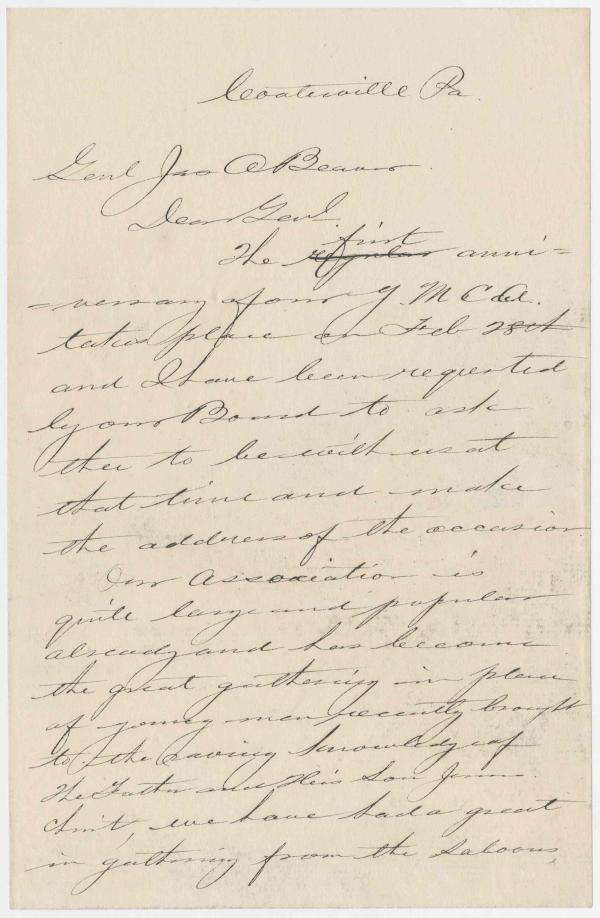 Coatesville Pa.
Genl Jas A Beaver.
Dear Genl.
The regular first anni=
=versary of our Y. M C A.
takes place on Feb 28th
and I have been requested
by our Board to ask
thee to be with us at
that time and make
the address of the occasion
Our Association is
quite large and popular
already and has become
the great gathering in place
of young men recently brought
to the saving knowledge of
The Father and His Son Jesus
Christ, we have had a great
in gathering from the Saloons,